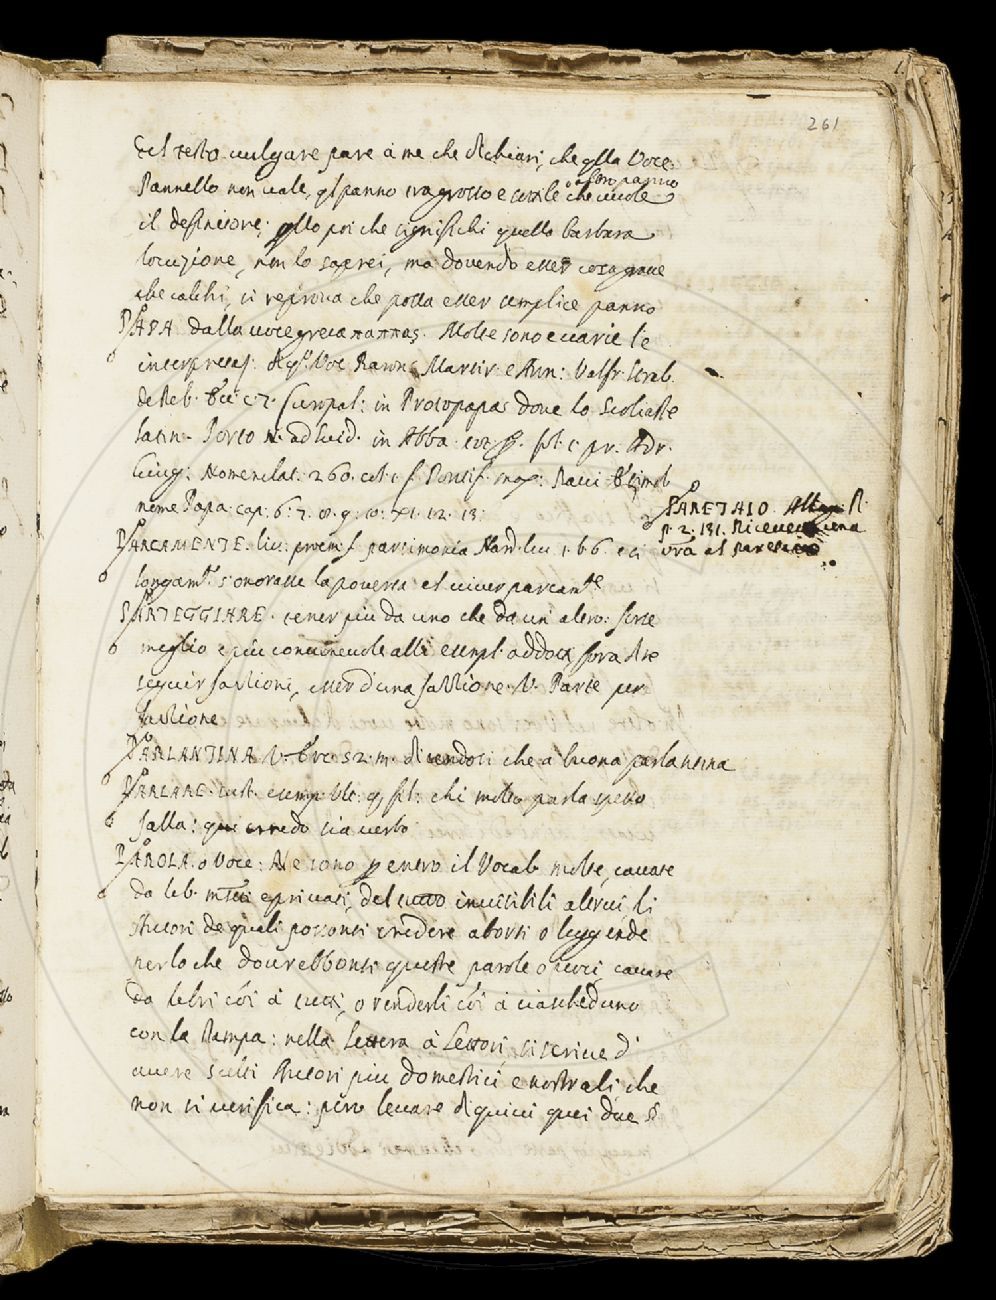 261
del testo vulgare pare à me che dichiari, che qlla Voce
Pannello non vale, ql panno tra grosso e sottile che vuole
o altro panno
il definitore; qllo poi che significhi quella barbara
locuzione, non lo saprei, ma dovendo esser cosa grave
che calchi, si reprova che possa esser semplice panno
PAPA dalla voce greca παππας. Molte sono e varie le
interpretaz. di qᵃ Voc. Martir. e Ann: Valfr. Strab.
de Reb. c. 7. in Protopapas dove lo Scoliaste
latin. Porto N. ad Suid. in Abba fol. c. pr. Adr.
Giug: Nomenclat: 260. col. 1. Pontif. max:
nome Papa. cap. 6. 7. 8. 9. 10. XI. 12. 13.
PARETAIO. Alleg.
p. 2. 131. Ricever una
ora al paretaio
PARCAMENTE. liv: proem. parsimonia Nard. liv. 1. b. 6. e sì
longamᵗᵉ s'onorasse la povertà el viver parcamᵗᵉ
PARTEGGIARE. tener più da uno che da un' altro: forse
meglio e più convenevole alli esempl. addotti fora dire
seguir fazzioni, esser d'una fazzione. V. Parte per
fazzione
PARLANTINA V. 52. m. dicendosi che à buona parlantina
PARLARE. sust. esemp. ult: chi molto parla spesso
falla: qui credo sia verbo
PAROLA. o Voce: Ne sono pentro il Vocab. molte, cavate
da lib. mSSti e privati, del tutto invisibili altrui, li
Autori de quali possonsi credere aborti o leggende
perloche dovrebbonsi queste parole o voci cavare
da libri cōi à tutti, o renderli cōi à ciascheduno
con la stampa: nella Lettera à Lettori, si scrive d'
avere scelti Autori più domestici e nostrali che
non si verifica: però levare di quivi quei due